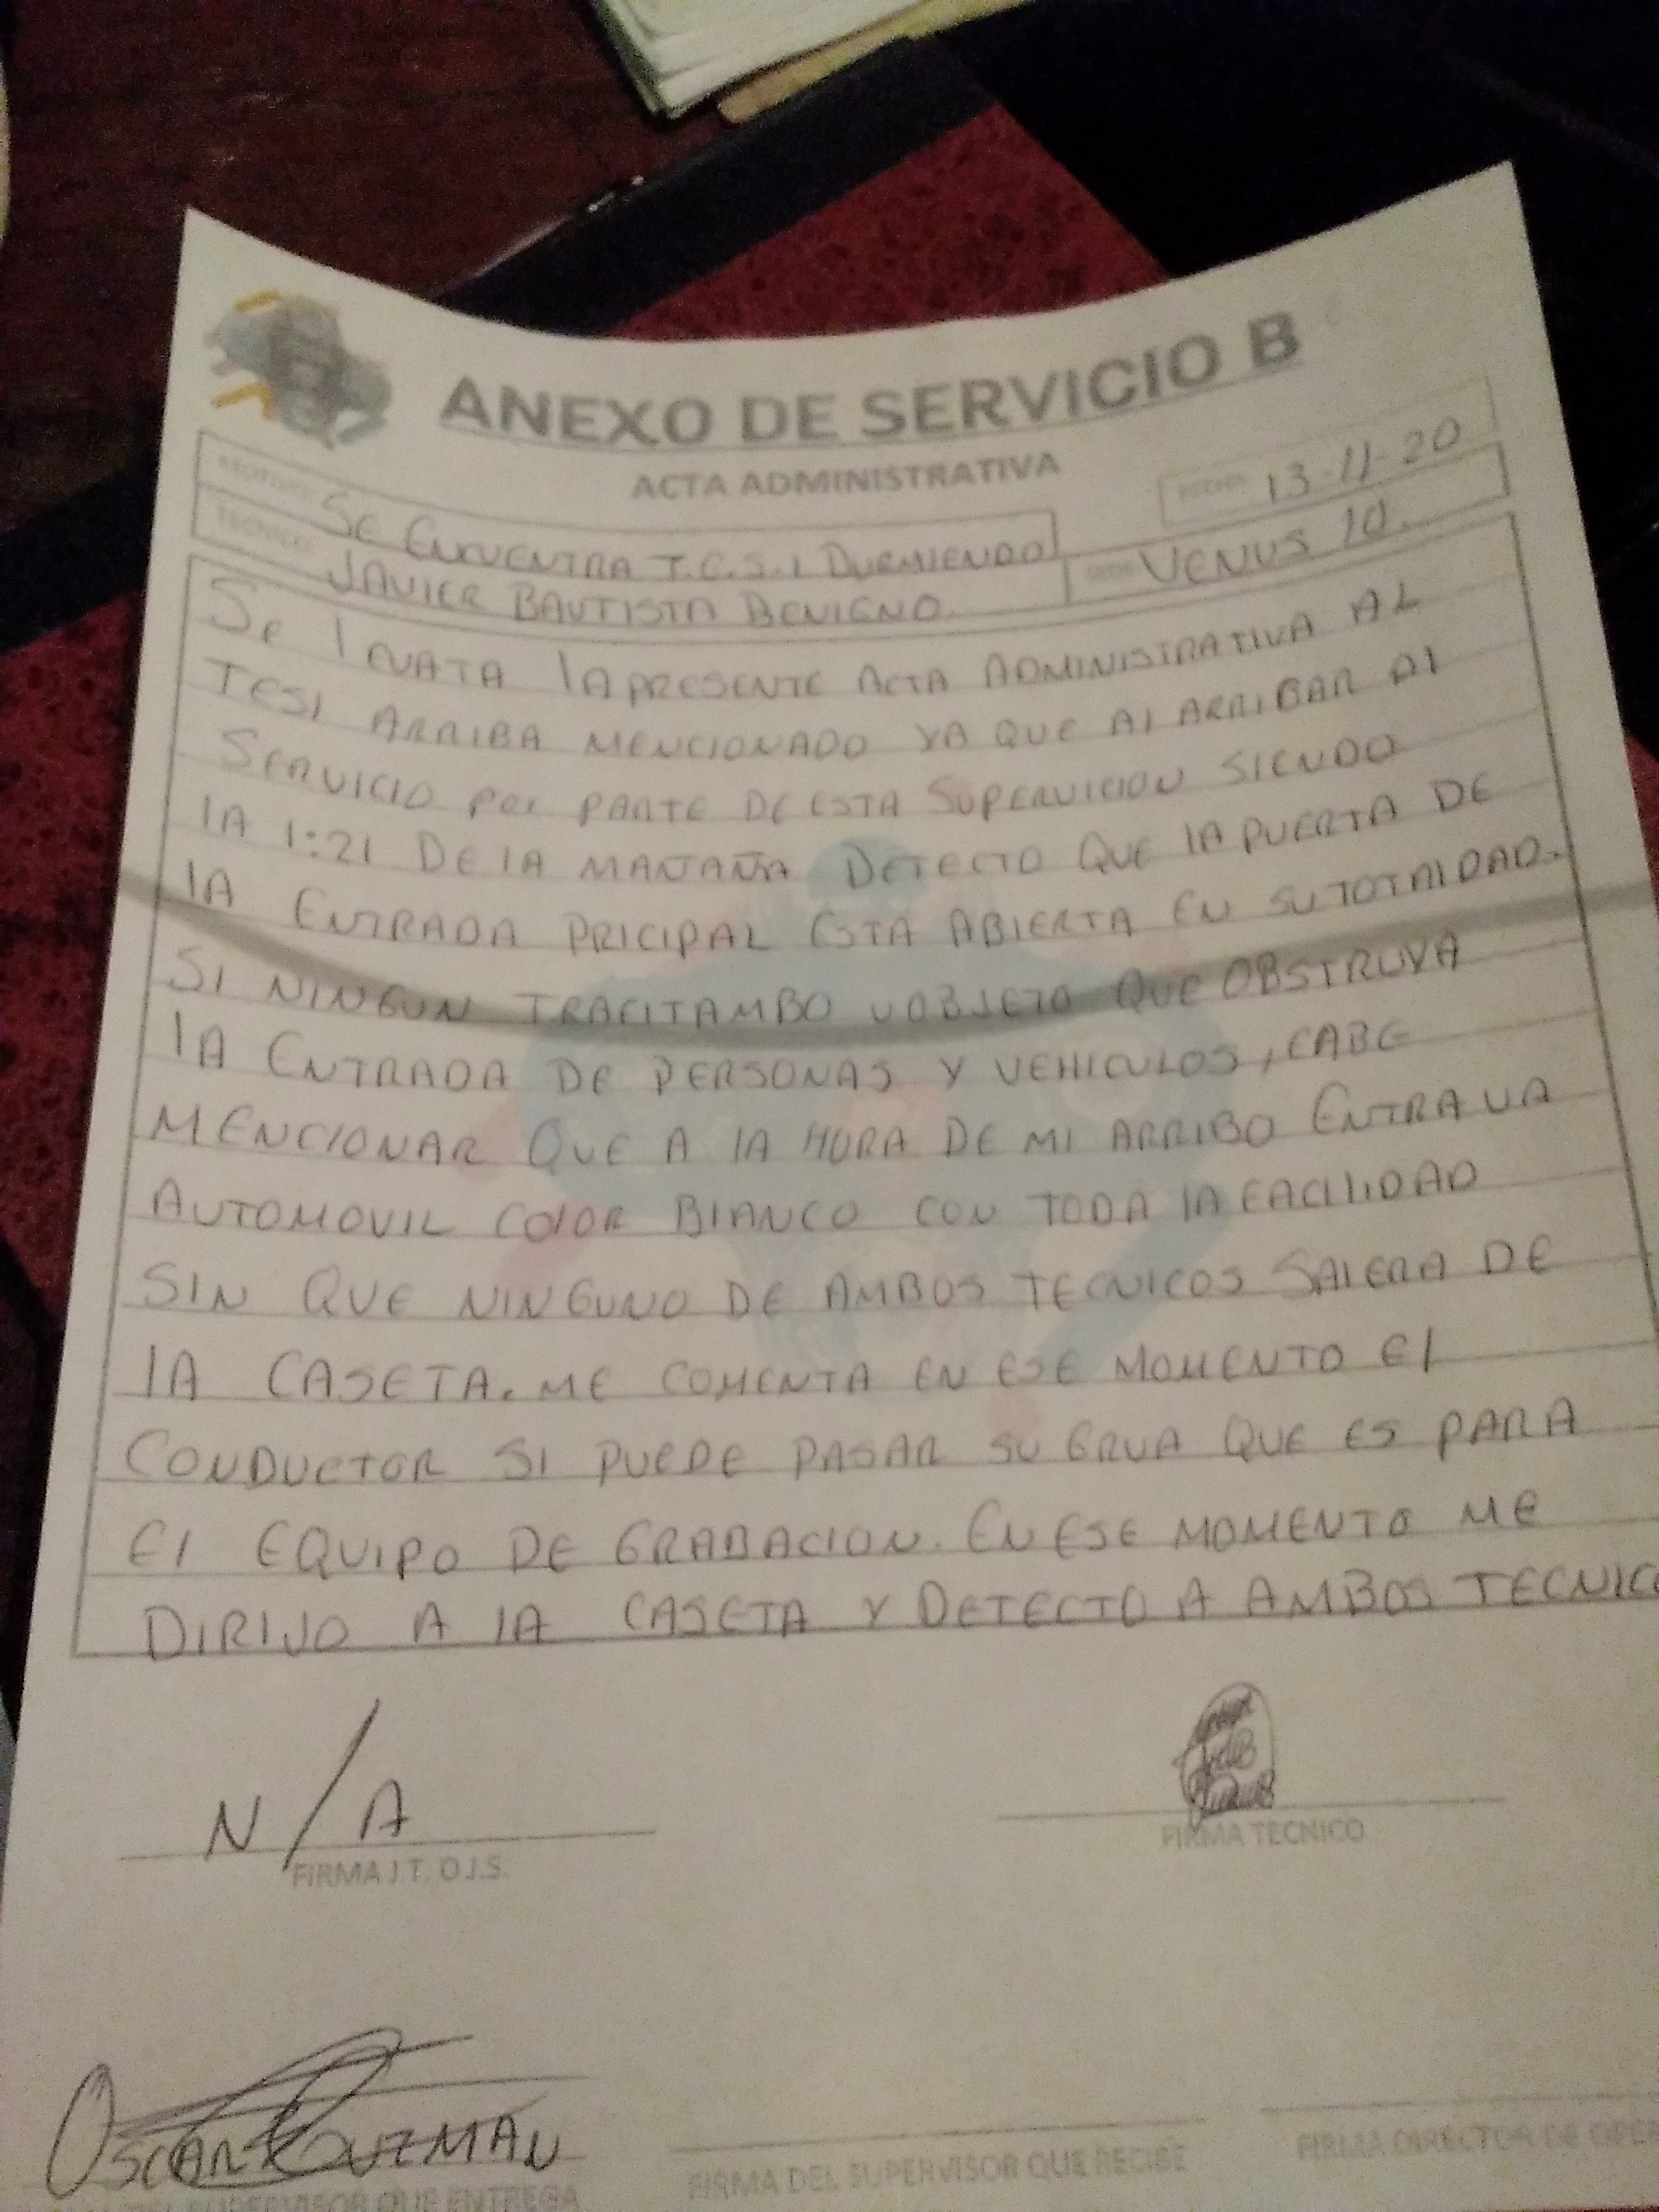 ANEXO DE SERVICIO B
ACTA ADMINISTRATIVA
FECHA: 13-11-20
MOTIVO: SE ENCUENTRA T.E.S.I DURMIENDO
TECNICO: JAVIER BAUTISTA BENIGNO.
SEDE: VENUS 10.
SE lEVATA lA PRESENTE ACTA ADMINISTRATIVA AL
TESI ARRIBA MENCIONADO YA QUE Al ARRIBAR Al
SERVICIO POr PARTE DE ESTA SUPERVICION SIENDO
lA 1:21 DE lA MAÑANA DETECTO QUE lA PUERTA DE
lA ENTRADA PRICIPAL ESTA ABIERTA EN SU TOTAlIDAD.
SI NINGUN TRAFITAMBO U OBJETO QUE OBSTRUYA
lA ENTRADA DE PERSONAS Y VEHICULOS, CABE
MENCIONAR QUE A lA HORA DE MI ARRIBO ENTRA UA
AUTOMOVIL COlOR BlANCO CON TODA lA FACIlIDAD
SIN QUE NINGUNO DE AMBOS TECNICOS SAlERA DE
lA CASETA. ME COMENTA EN ESE MOMENTO El
CONDUCTOR SI PUEDE PASAR SU GRUA QUE ES PARA
El EQUIPO DE GRABACION. EN ESE MOMENTO ME
DIRIJO A lA CASETA Y DETECTO A AMBOS TECNICO
N/A
FIRMA J.T. O J.S.
FIRMA TECNICO
OSCAR GUZMAN
DEL SUPERVISOR QUE ENTREGA
FIRMA DEL SUPERVISOR QUE RECIBE
FIRMA DIRECTOR DE OPE